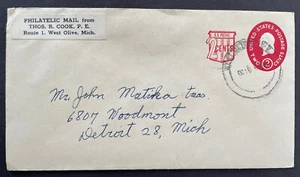 PHILATELIC MAIL from
THOS. R. COOK, P. E.
Route 1, West Olive, Mich.
U.S. POSTAGE
2 1/2
CENTS
UNITED STATES POSTAGE
TWO CENTS
2
Mr. John Matika
6807 Woodmont
Detroit 28, Mich